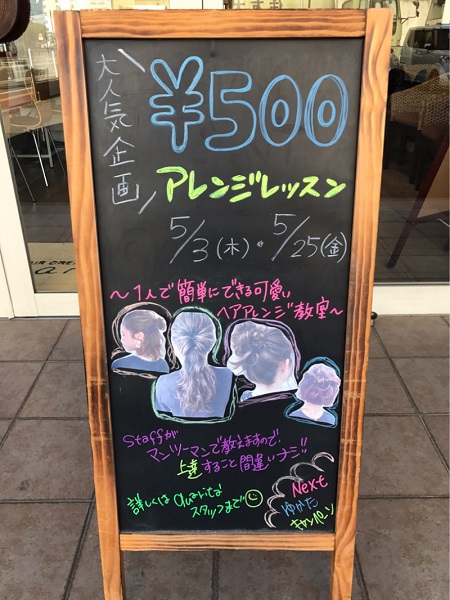 大人気企画
¥500
アレンジレッスン
5/3(木)・5/25(金)
〜1人で簡単にできる可愛い
ヘアアレンジ教室〜
Staffが
マンツーマンで教えますので、
上達すること間違いナシ!!
詳しくは Quarita
スタッフまで
Next
ゆかた
キャンペーン